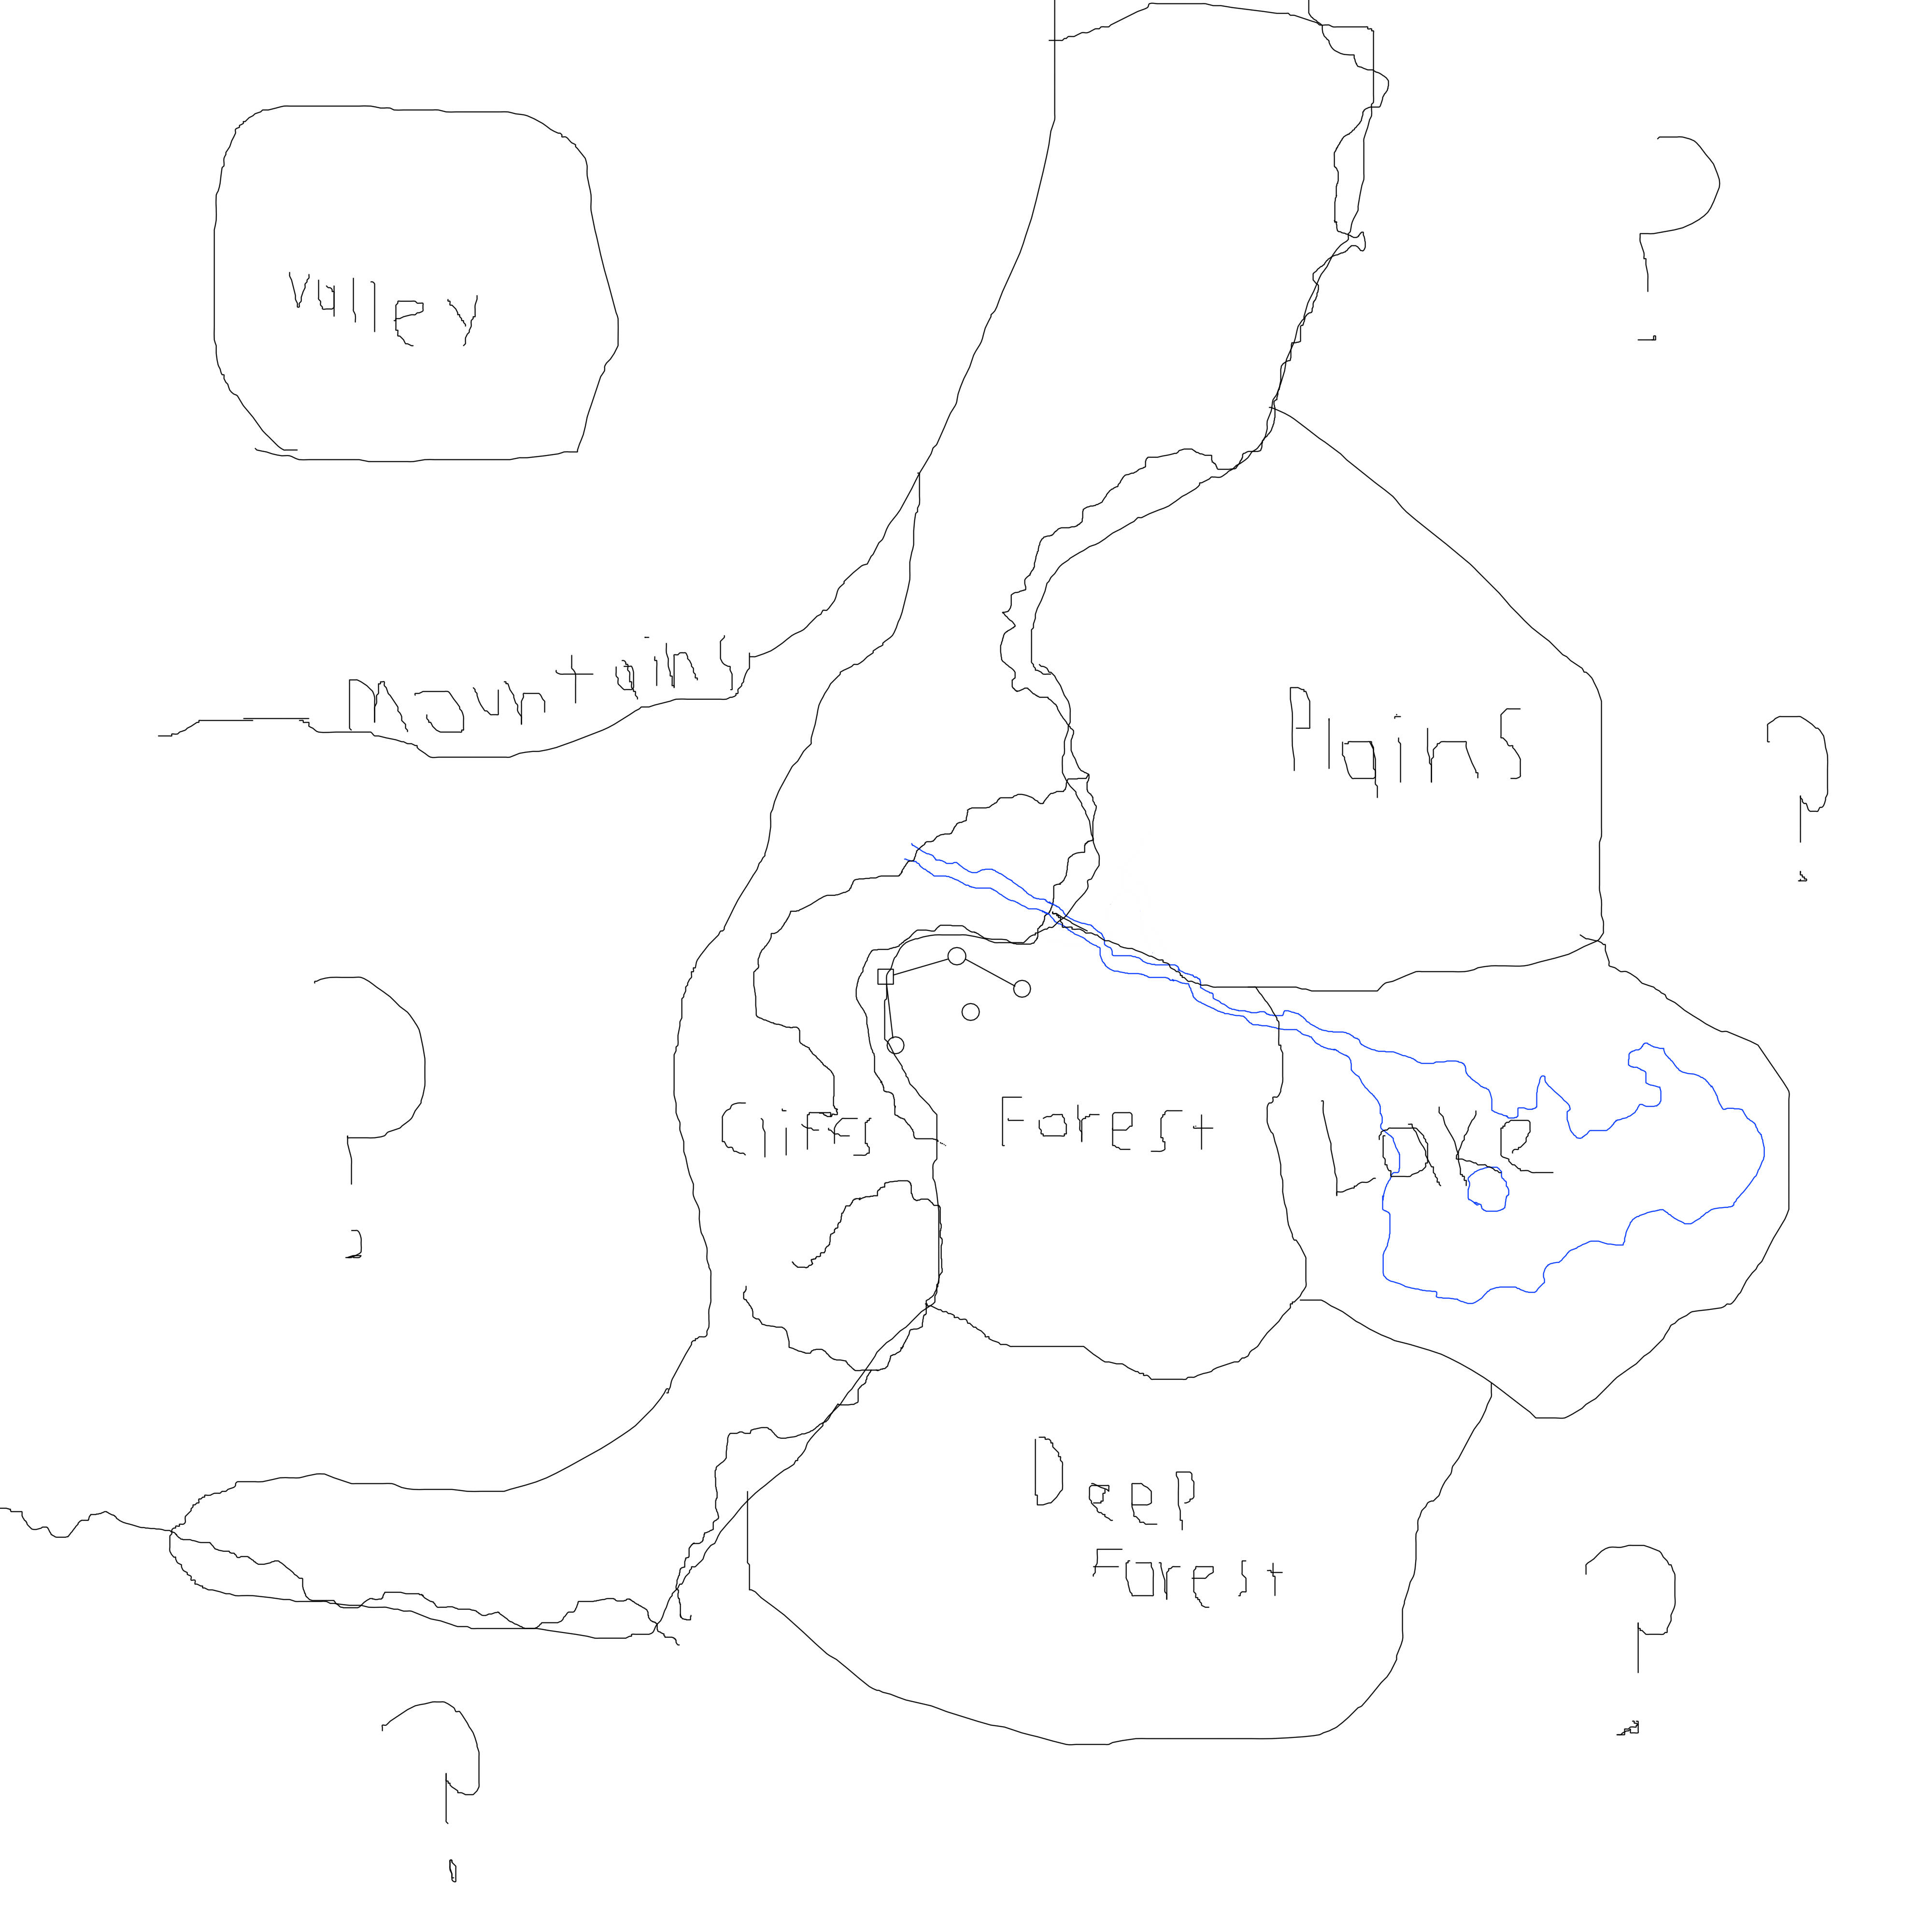 ?
Valley
Mountains
Plains
?
?
Cliffs
Forest
Lake
Deep
Forest
?
?